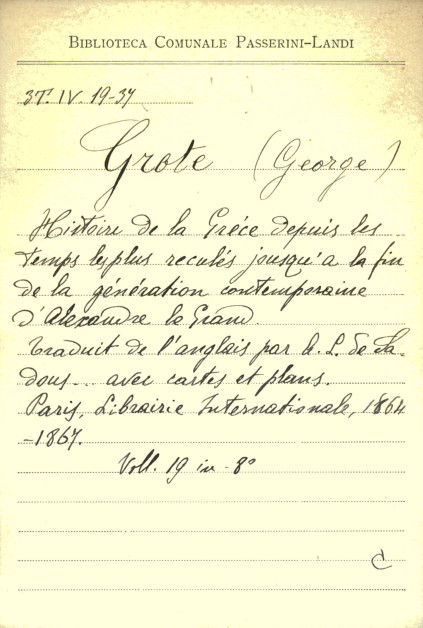 BIBLIOTECA COMUNALE PASSERINI-LANDI
3T. IV. 19-37
Grote (George)
Histoire de la Gréce depuis les
temps les plus reculés jousqu'a la fin
de la génération contemporaine
d'Alexandre le Grand.
Traduit de l'anglais par A. L. de Sa-
dous... avec cartes et plans.
Paris, Librairie Internationale, 1864
-1867.
Voll. 19 in - 8°
C